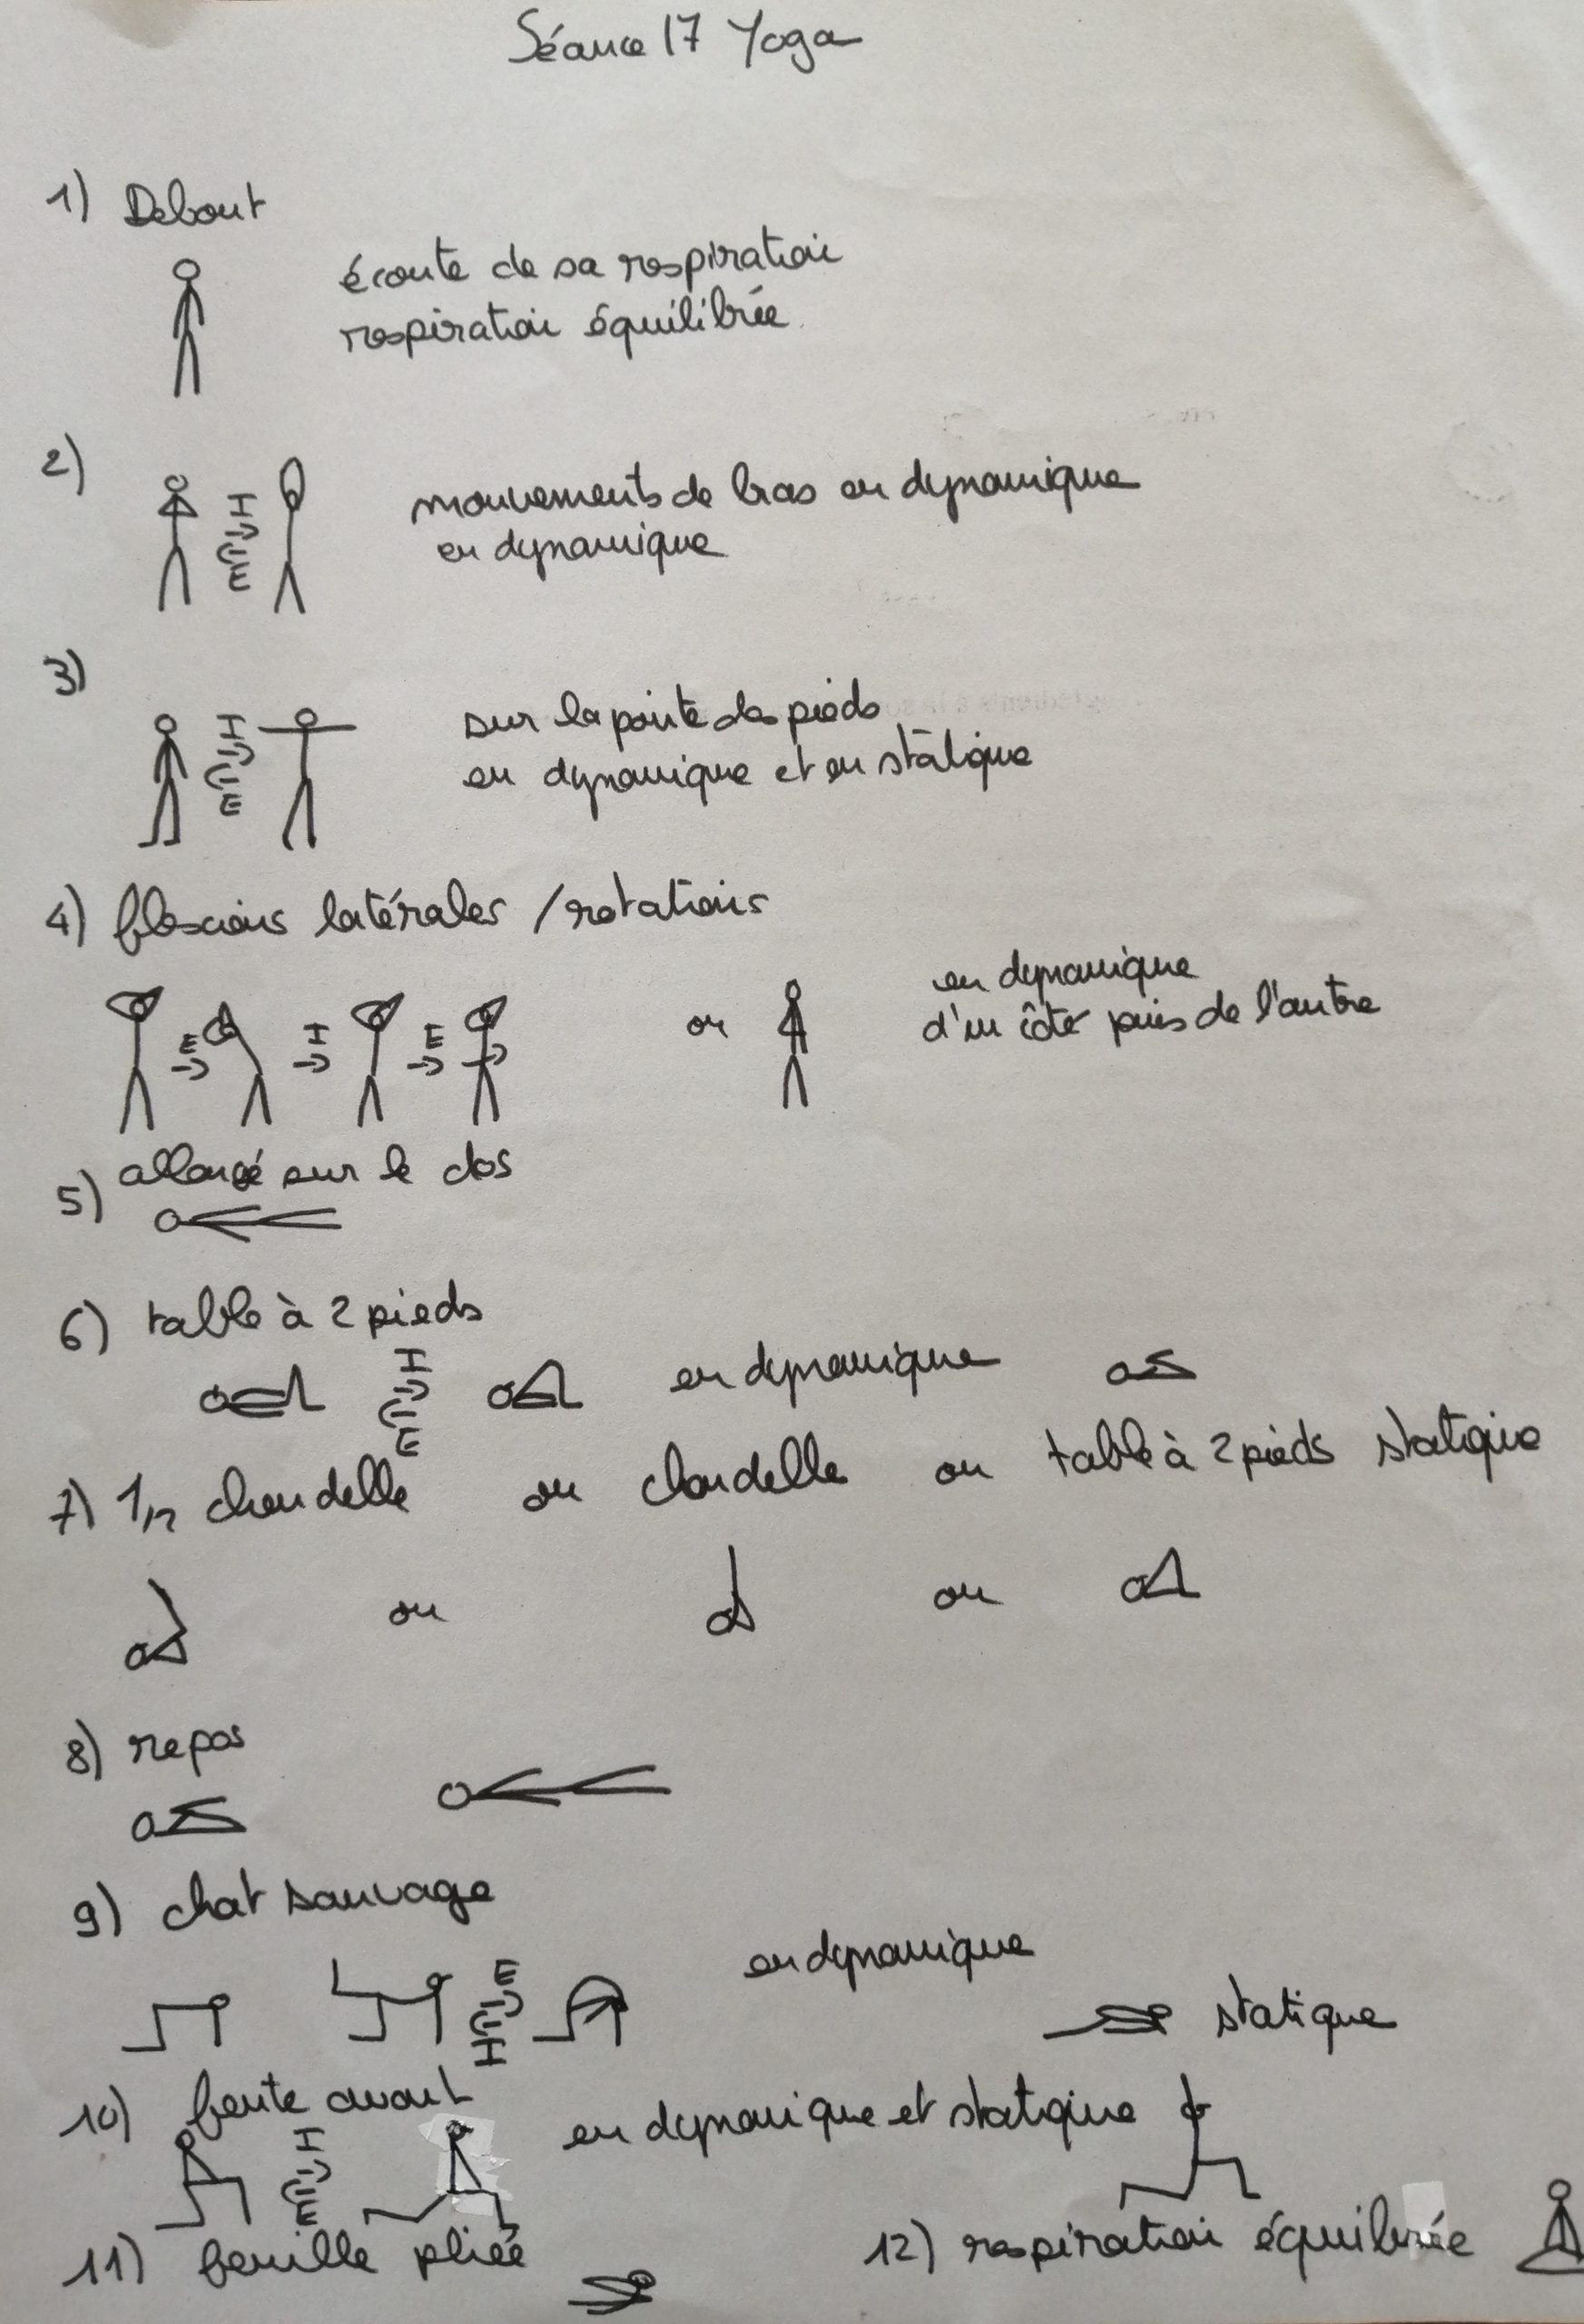 Séance 17 Yoga
1) Debout
écoute de sa respiration
respiration équilibrée
2)
I
E
mouvements de bras en dynamique
en dynamique
3)
I
E
sur la pointe des pieds
en dynamique et en statique
4) flexions latérales / rotations
E I E
ou
en dynamique
d'un côté puis de l'autre
5) allongé sur le dos
6) table à 2 pieds
I
E
en dynamique
7) 1/2 chandelle ou chandelle ou table à 2 pieds statique
ou ou
8) repos
9) chat sauvage
E
I
en dynamique
statique
10) fente avant
I
E
en dynamique et statique
11) feuille pliée
12) respiration équilibrée